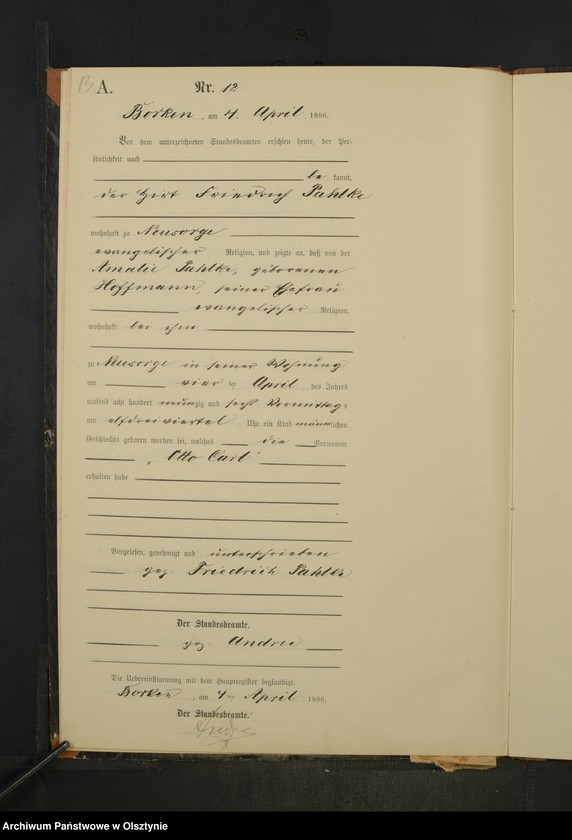 B A. Nr. 12
Borken, am 4. April 1896.
Vor dem unterzeichneten Standesbeamten erschien heute, der Per-
sönlichkeit nach
be kannt,
der Hirt Friedrich Pahlke
wohnhaft zu Neusorge
evangelischer Religion, und zeigte an, daß von der
Amalie Pahlke, geborenen
Hoffmann, seiner Ehefrau
evangelischer Religion,
wohnhaft bei ihm
zu Neusorge in seiner Wohnung
am vier ten April des Jahres
tausend acht hundert neunzig und sechs Vormittags
um elfdreiviertel Uhr ein Kind männlichen
Geschlechts geboren worden sei, welches die Vornamen
"Otto Carl"
erhalten habe
Vorgelesen, genehmigt und unterschrieben
gez. Friedrich Pahlke
Der Standesbeamte.
gez. Andrie
Die Uebereinstimmung mit dem Hauptregister beglaubigt.
Borken, am 4 ten April 1896.
Der Standesbeamte
Archiwum Państwowe w Olsztynie